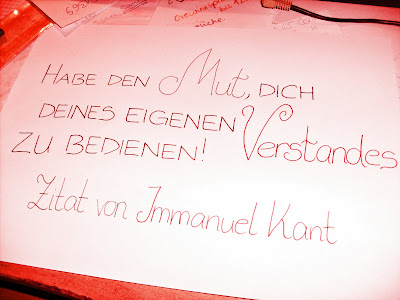 HABE DEN Mut, DICH
DEINES EIGENEN Verstandes
ZU BEDIENEN!
Zitat von Immanuel Kant